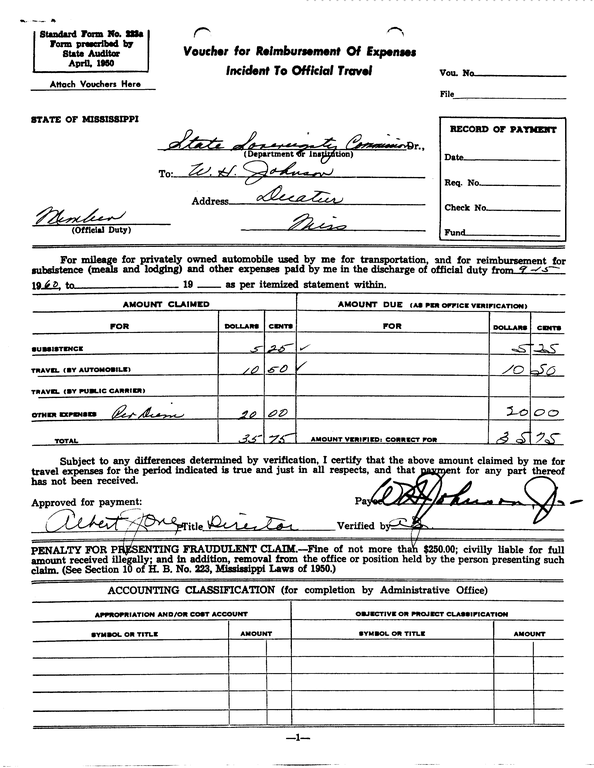 Standard Form No. 223a
Form prescribed by
State Auditor
April, 1950
Attach Vouchers Here
Voucher for Reimbursement Of Expenses
Incident To Official Travel
Vou. No.
File
STATE OF MISSISSIPPI
RECORD OF PAYMENT
Date
Req. No.
Check No.
Fund
State Sovereignty Commission Dr.,
(Department or Institution)
To: W. H. Johnson
Address Decatur
Miss
Member
(Official Duty)
For mileage for privately owned automobile used by me for transportation, and for reimbursement for
subsistence (meals and lodging) and other expenses paid by me in the discharge of official duty from 9-15
1960, to 19 as per itemized statement within.
AMOUNT CLAIMED AMOUNT DUE (AS PER OFFICE VERIFICATION)
FOR DOLLARS CENTS FOR DOLLARS CENTS
SUBSISTENCE 5 25 ✓ 5 25
TRAVEL (BY AUTOMOBILE) 10 50 ✓ 10 50
TRAVEL (BY PUBLIC CARRIER)
OTHER EXPENSES Per Diem 20 00 20 00
TOTAL 35 75 AMOUNT VERIFIED: CORRECT FOR 35 75
Subject to any differences determined by verification, I certify that the above amount claimed by me for
travel expenses for the period indicated is true and just in all respects, and that payment for any part thereof
has not been received.
Approved for payment: Payee W H Johnson Jr-
Albert Jones Title Director Verified by
PENALTY FOR PRESENTING FRAUDULENT CLAIM.—Fine of not more than $250.00; civilly liable for full
amount received illegally; and in addition, removal from the office or position held by the person presenting such
claim. (See Section 10 of H. B. No. 223, Mississippi Laws of 1950.)
ACCOUNTING CLASSIFICATION (for completion by Administrative Office)
APPROPRIATION AND/OR COST ACCOUNT OBJECTIVE OR PROJECT CLASSIFICATION
SYMBOL OR TITLE AMOUNT SYMBOL OR TITLE AMOUNT
—1—